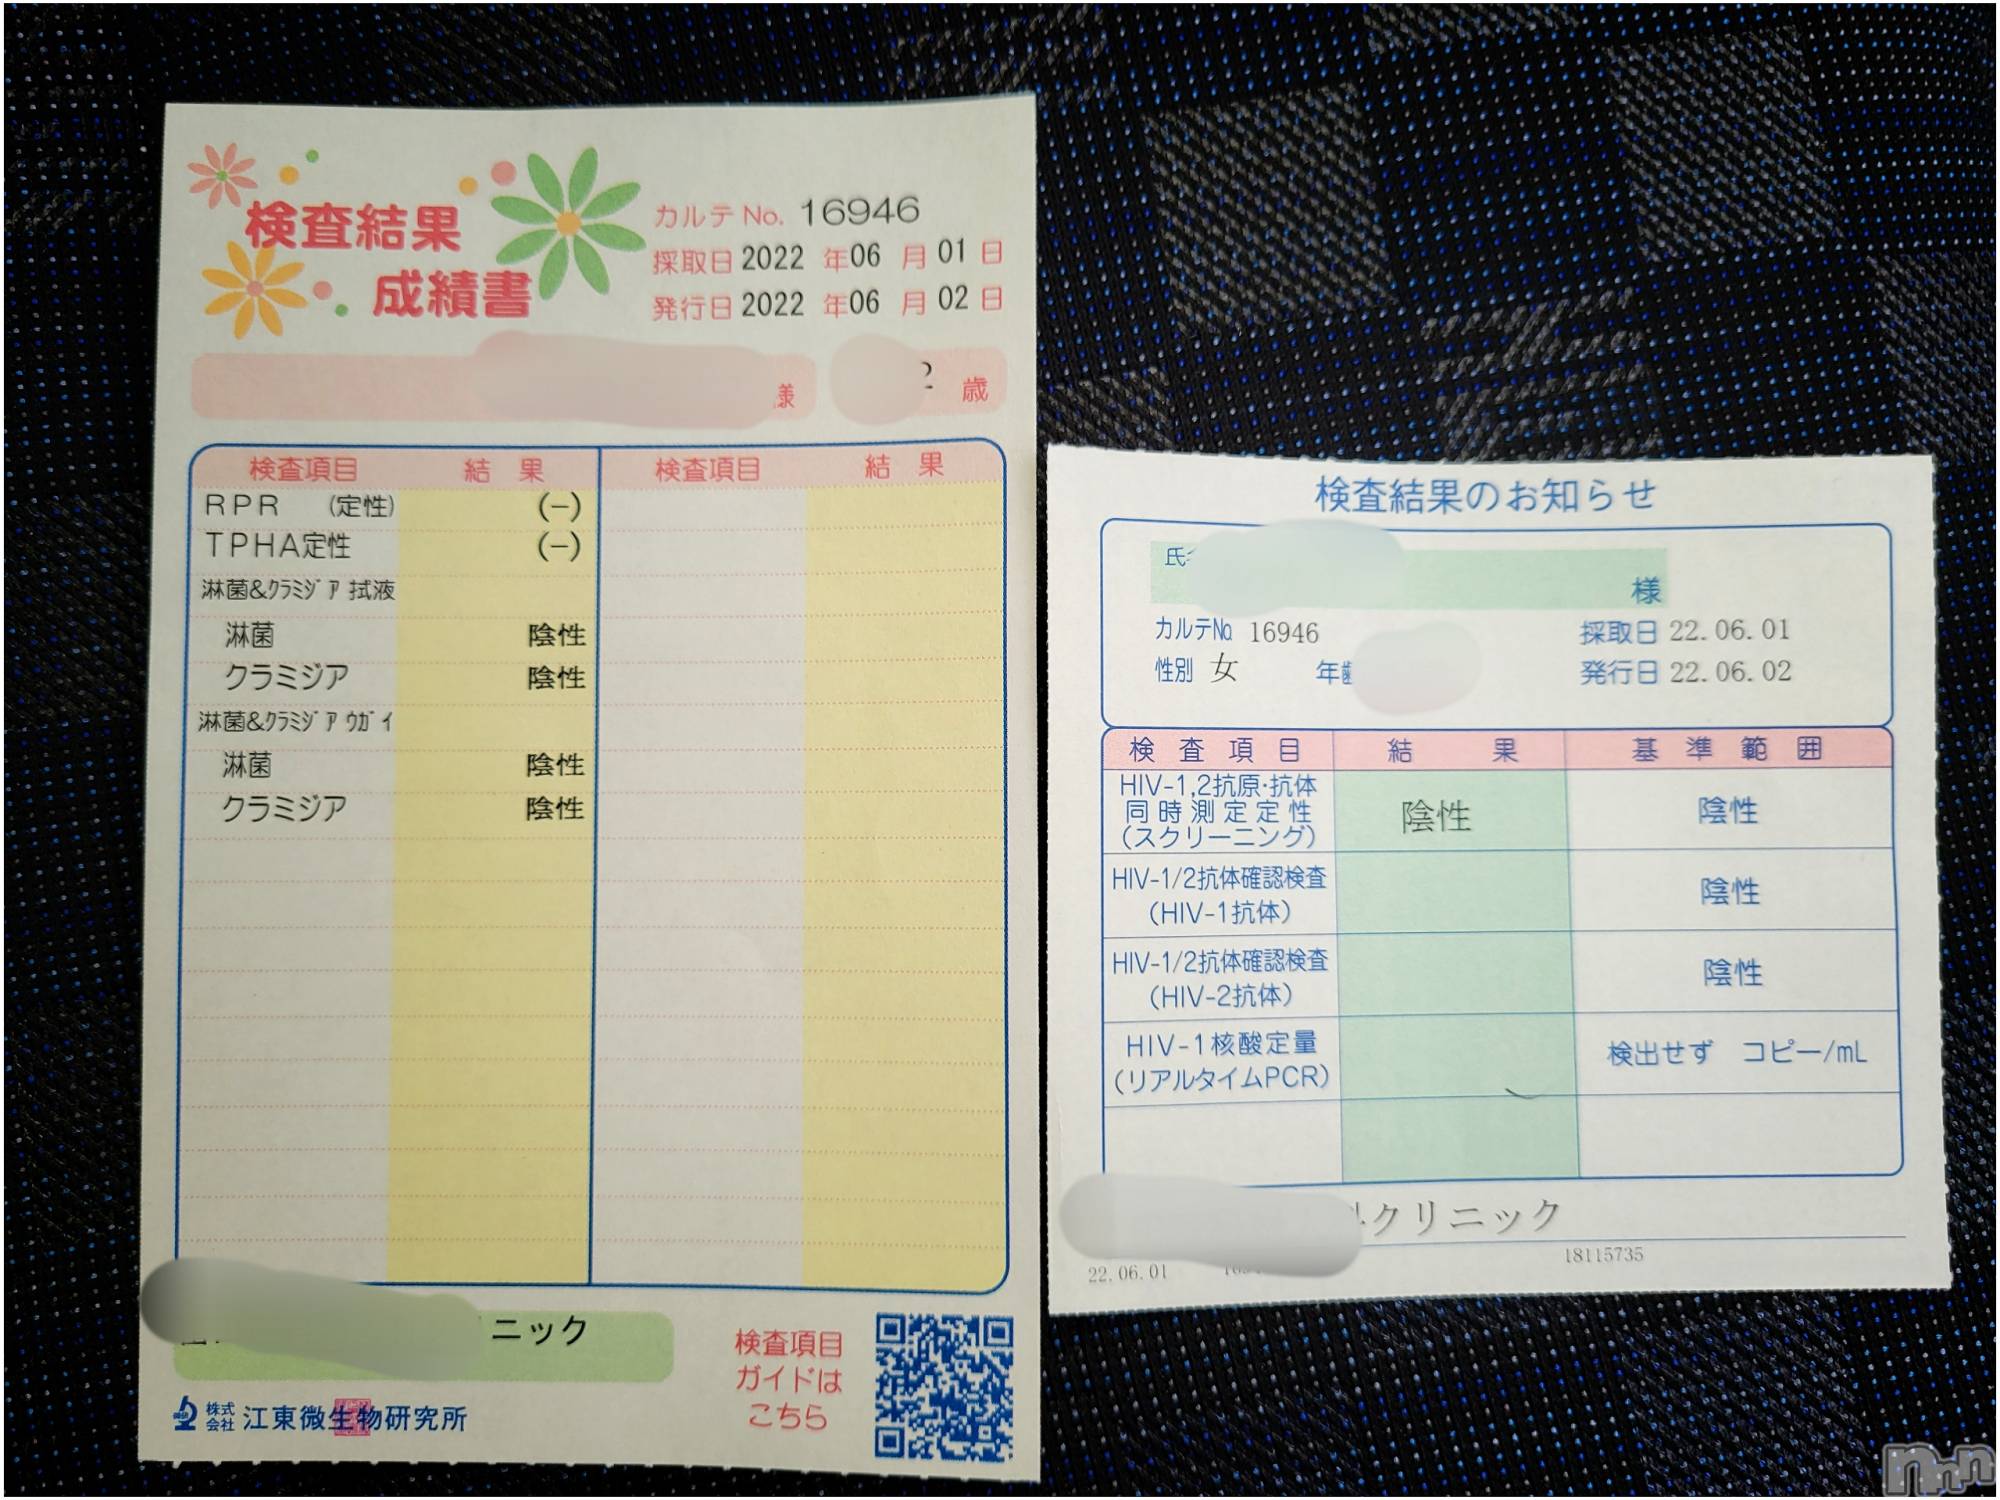 検査結果
成績書
カルテNo. 16946
採取日 2022 年 06 月 01 日
発行日 2022 年 06 月 02 日
様
2 歳
検査項目 結果 検査項目 結果
RPR (定性) (-)
TPHA定性 (-)
淋菌&クラミジア 拭液
淋菌 陰性
クラミジア 陰性
淋菌&クラミジア ウガイ
淋菌 陰性
クラミジア 陰性
ニック
検査項目
ガイドは
こちら
株式会社 江東微生物研究所
検査結果のお知らせ
様
カルテNo 16946 採取日 22.06.01
性別 女 年齢 発行日 22.06.02
検査項目 結果 基準範囲
HIV-1,2抗原・抗体
同時測定定性
(スクリーニング) 陰性 陰性
HIV-1/2抗体確認検査
(HIV-1抗体) 陰性
HIV-1/2抗体確認検査
(HIV-2抗体) 陰性
HIV-1核酸定量
(リアルタイムPCR) 検出せず コピー/mL
クリニック
22.06.01 18115735
nnn